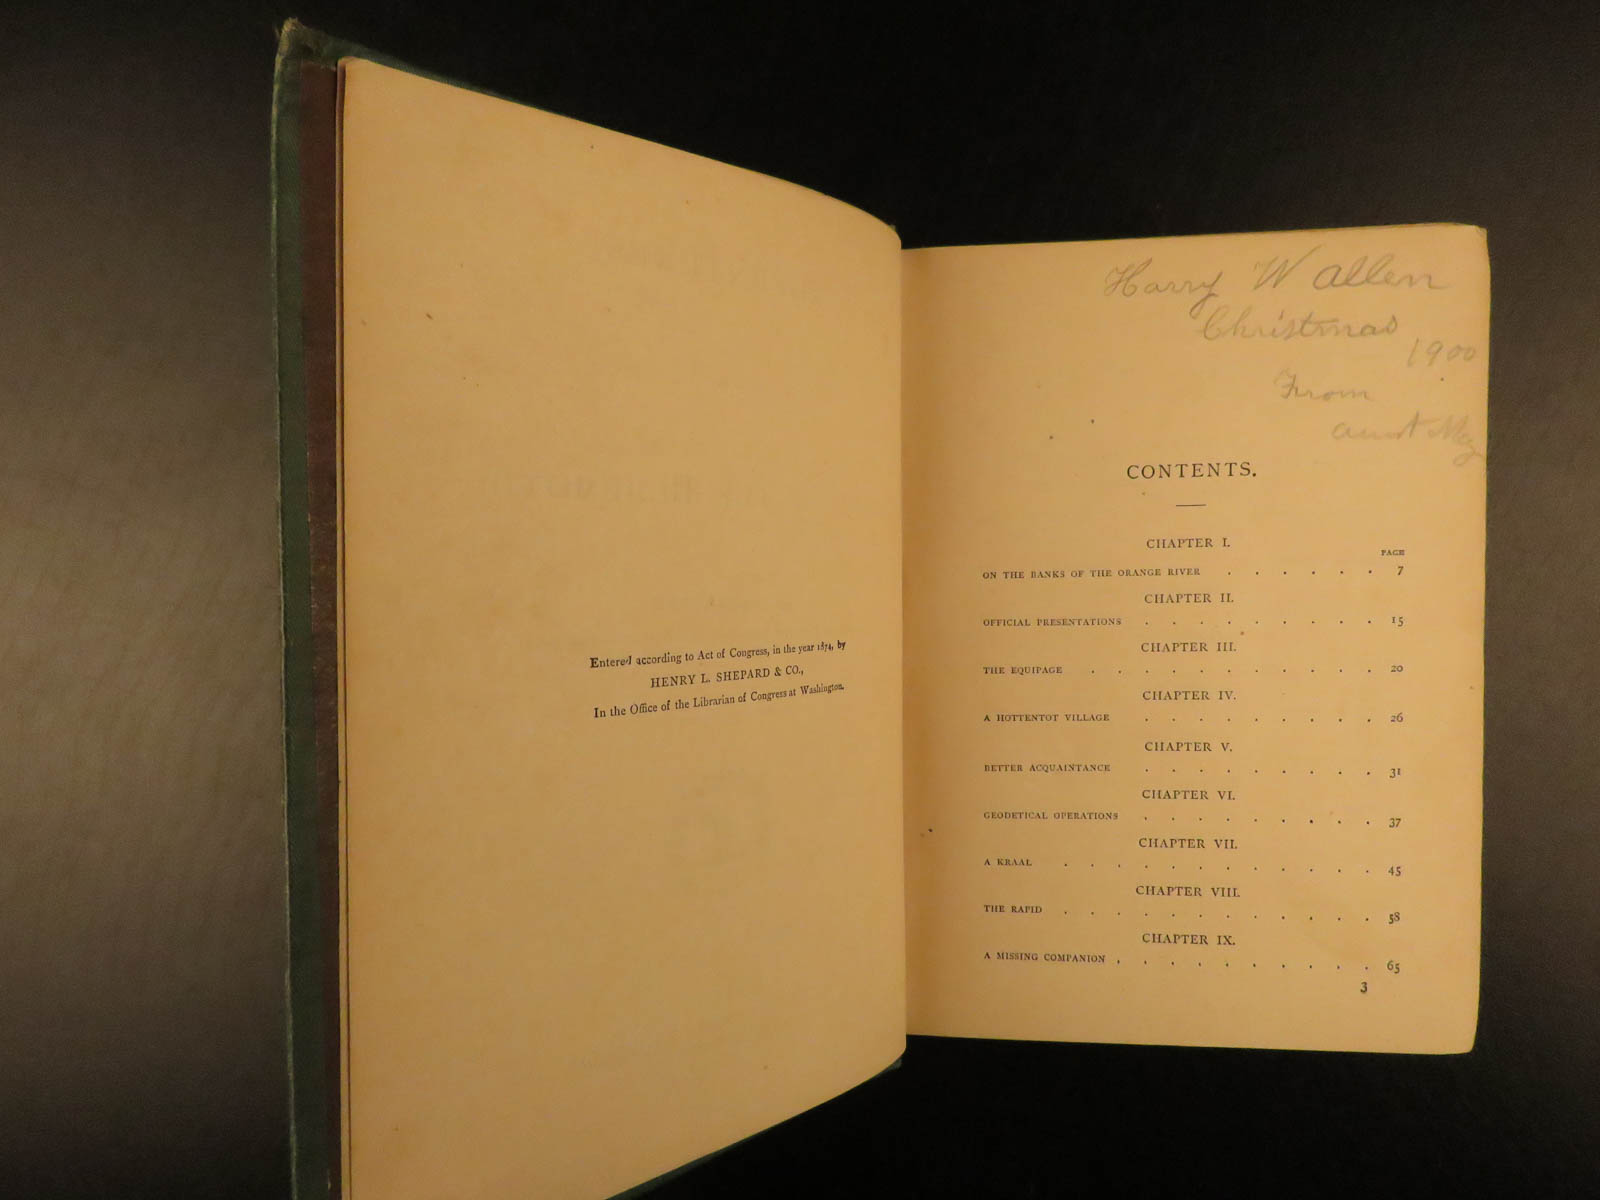 Entered according to Act of Congress, in the year 1874, by
HENRY L. SHEPARD & CO.,
In the Office of the Librarian of Congress at Washington.
Harry W Allen
Christmas
1900
From
Aunt May
CONTENTS.
CHAPTER I.
PAGE
ON THE BANKS OF THE ORANGE RIVER . . . . . . 7
CHAPTER II.
OFFICIAL PRESENTATIONS . . . . . . . . . 15
CHAPTER III.
THE EQUIPAGE . . . . . . . . . . . 20
CHAPTER IV.
A HOTTENTOT VILLAGE . . . . . . . . . 26
CHAPTER V.
BETTER ACQUAINTANCE . . . . . . . . . 31
CHAPTER VI.
GEODETICAL OPERATIONS . . . . . . . . . 37
CHAPTER VII.
A KRAAL . . . . . . . . . . . . 45
CHAPTER VIII.
THE RAPID . . . . . . . . . . . . 58
CHAPTER IX.
A MISSING COMPANION . . . . . . . . . . 65
3